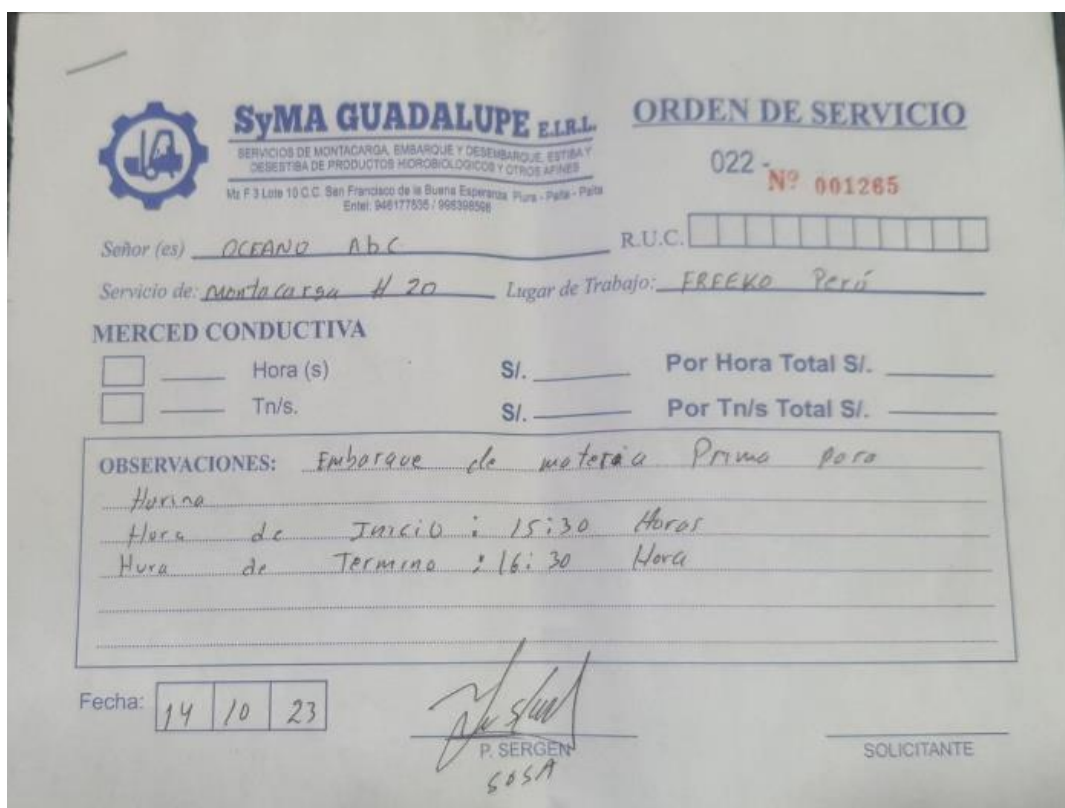 SyMA GUADALUPE E.I.R.L.
SERVICIOS DE MONTACARGA, EMBARQUE Y DESEMBARQUE, ESTIBA Y
DESESTIBA DE PRODUCTOS HIDROBIOLOGICOS Y OTROS AFINES
Mz F 3 Lote 10 C.C. San Francisco de la Buena Esperanza Piura - Paita - Paita
Entel: 946177535 / 998398598
ORDEN DE SERVICIO
022 - Nº 001265
Señor (es) OCEANO AbC R.U.C.
Servicio de: Montacarga # 20 Lugar de Trabajo: FREEKO Perú
MERCED CONDUCTIVA
Hora (s) S/. Por Hora Total S/.
Tn/s. S/. Por Tn/s Total S/.
OBSERVACIONES: Embarque de materia Prima para
Harina
Hora de Inicio : 15:30 Horas
Hora de Termino : 16:30 Hora
Fecha: 14 10 23
P. SERGEN
SOSA
SOLICITANTE